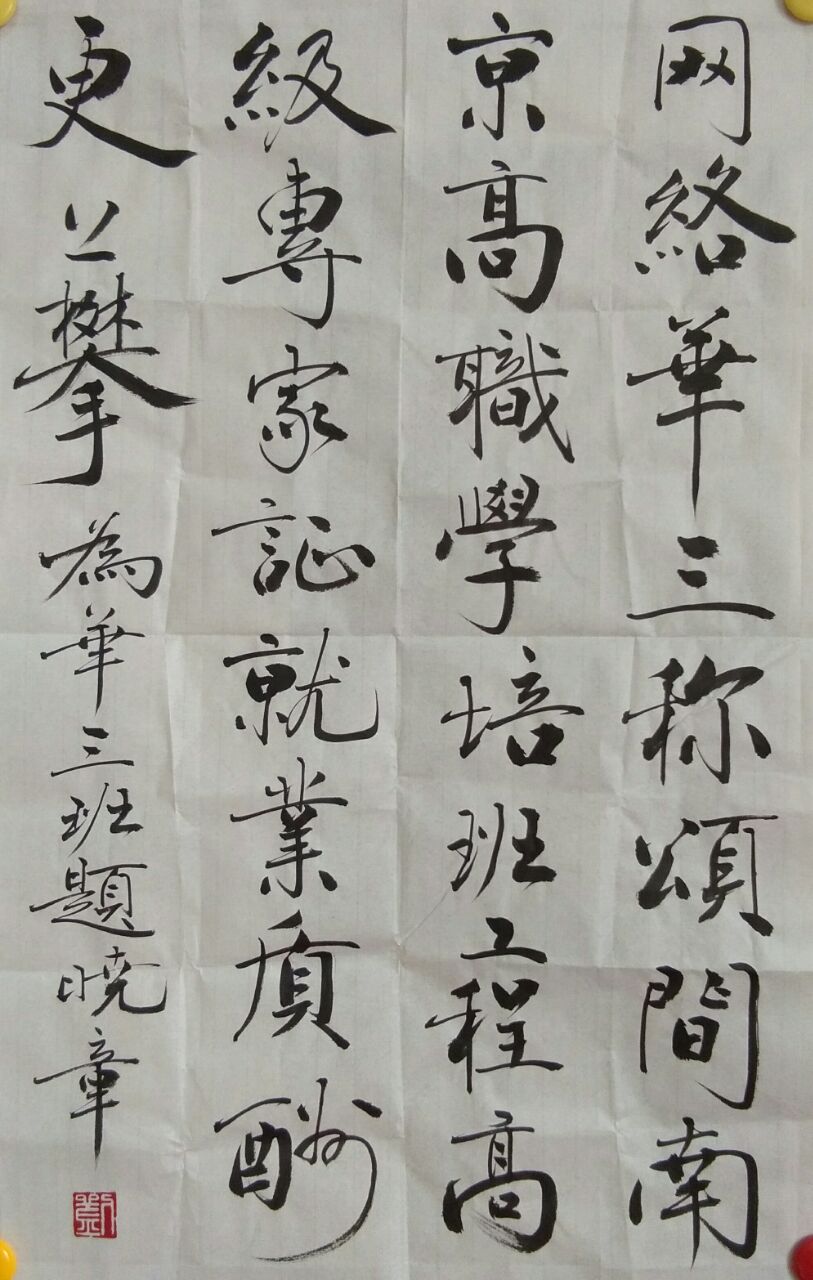 网絡華三称頌間南
京高職學培班工程高
級專家証就業質酬
更上攀為華三班題曉章